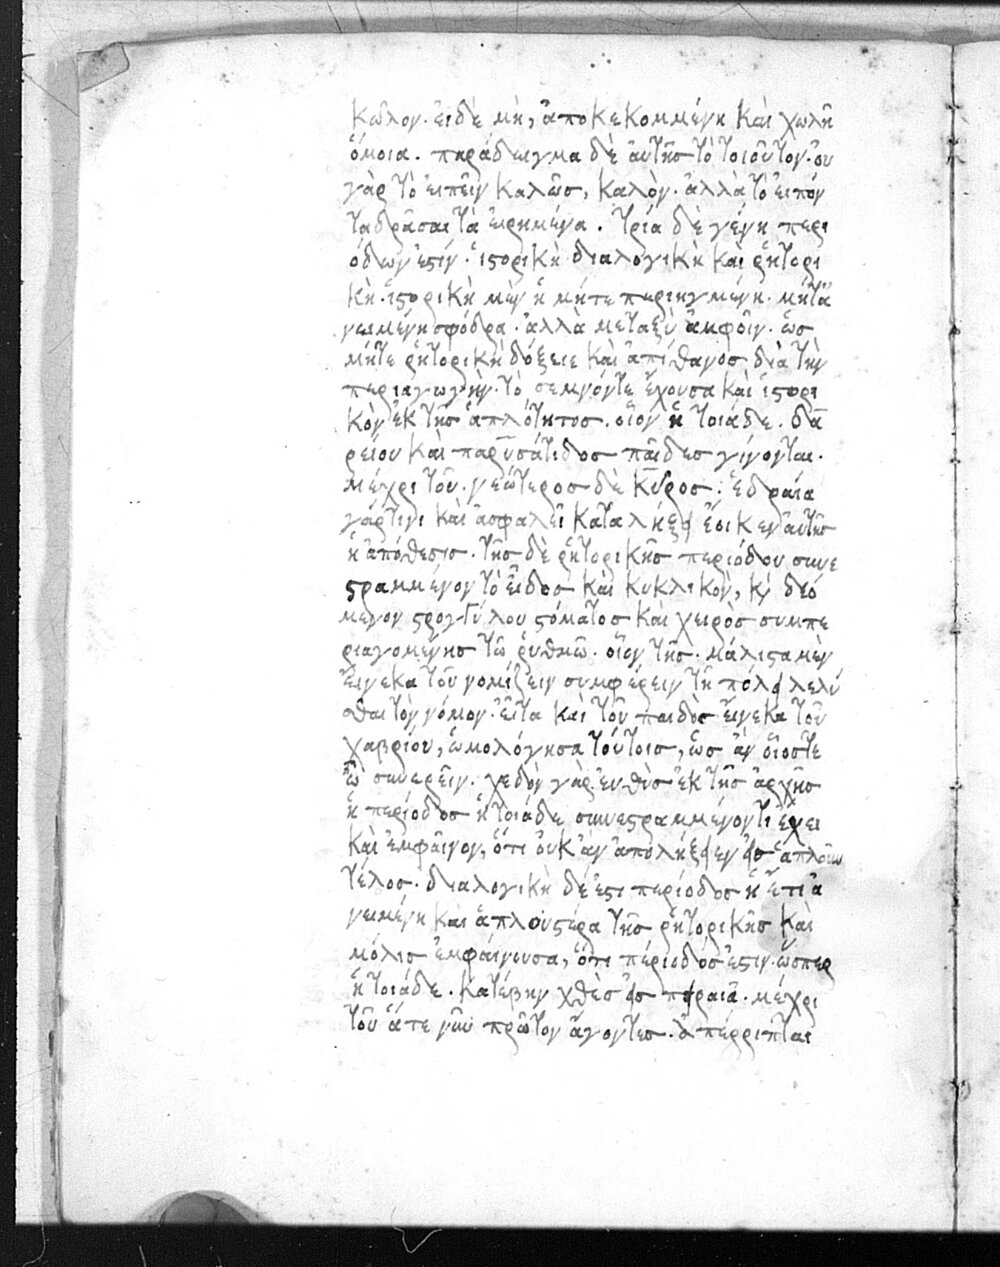 κῶλον· εἰ δὲ μὴ, ἀποκεκομμένη καὶ χωλῆ
ὁμοία. παράδειγμα δὲ αὐτῆς τὸ τοιοῦτον· οὐ
γὰρ τὸ εἰπεῖν καλῶς, καλὸν· ἀλλὰ τὸ εἰπόν
τα δρᾶσαι τὰ εἰρημένα. τρία δὲ γένη περι
όδων ἐστίν· ἱστορικὴ διαλογικὴ καὶ ῥητορι
κὴ· ἱστορικὴ μὲν ἡ μήτε περιηγμένη· μήτ' ἀ
νειμένη σφόδρα· ἀλλὰ μεταξὺ ἀμφοῖν· ὡς
μήτε ῥητορικὴ δόξειε καὶ ἀπίθανος διὰ τὴν
περιαγωγὴν· τὸ σεμνόν τε ἔχουσα καὶ ἱστορι
κὸν ἐκ τῆς ἁπλότητος. οἷον ἡ τοιάδε. δα
ρείου καὶ παρυσάτιδος παῖδες γίνονται·
μέχρι τοῦ· νεώτερος δὲ κῦρος· ἑδραία
γάρ τινι καὶ ἀσφαλεῖ καταλήξει ἔοικεν αὐτῆς
ἡ ἀπόθεσις. τῆς δὲ ῥητορικῆς περιόδου συνε
στραμμένον τὸ εἶδος καὶ κυκλικὸν, καὶ δεό
μενον στρογγύλου στόματος καὶ χειρὸς συμπε
ριαγομένης τῶ ῥυθμῶ· οἷον τῆς· μάλιστα μὲν
εἵνεκα τοῦ νομίζειν συμφέρειν τῆ πόλει λελύ
σθαι τὸν νόμον· εἶτα καὶ τοῦ παιδὸς εἵνεκα τοῦ
χαβρίου, ὡμολόγησα τούτοις, ὡς ἂν οἷός τε
ὦ συνερεῖν. σχεδὸν γὰρ εὐθὺς ἐκ τῆς ἀρχῆς
ἡ περίοδος ἡ τοιάδε συνεστραμμένον τι ἔχει
καὶ ἐμφαῖνον, ὅτι οὐκ ἂν ἀπολήξειεν εἰς ἁπλοῦν
τέλος. διαλογικὴ δέ ἐστι περίοδος ἡ ἔτι ἀ
νειμένη καὶ ἁπλουστέρα τῆς ῥητορικῆς καὶ
μόλις ἐμφαίνουσα, ὅτι περίοδός ἐστιν· ὥσπερ
ἡ τοιάδε. κατέβην χθὲς εἰς πειραιᾶ· μέχρι
τοῦ ἅτε νῦν πρῶτον ἄγοντες. ἀπέρριπται